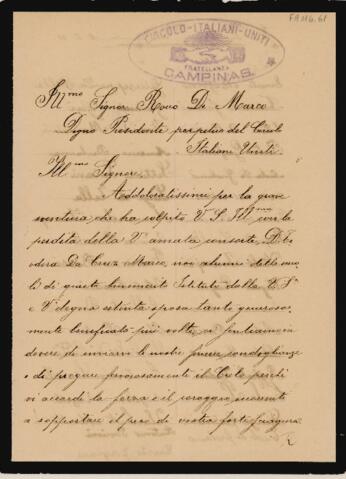 FAMG.61
CIRCOLO-ITALIANI-UNITI
FRATELLANZA
CAMPINAS
Ill.mo Signor Rovo Di Marco
Degno Presidente perpetuo del Circolo
Italiani Uniti.
Ill.mo Signore.
Addoloratissimi per la grave
sventura che ha colpito V. S. Ill.ma con la
perdita della V.a amata consorte, D.
Da Cruz Marco, noi alunni delle
di questo Istituto dalla V. S.
e V. degna estinta sposa tanto generosa-
mente beneficato più volte, ci sentiamo in
dovere di inviarvi le nostre condoglianze
e di pregare fervorosamente il Cielo perchè
vi accordi la forza e il coraggio necessari
a sopportare il peso di vostra forte sciagura.